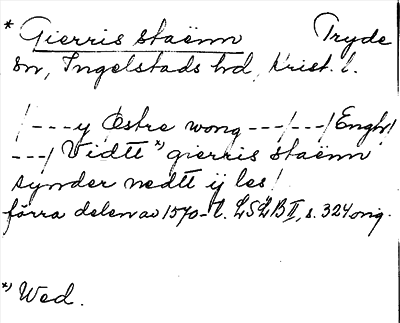 * Gierris staënn Tryde
sn, Ingelstads hd, Krist. l.
/---y Østre wong ---/---/ Enghr/
---/ Vidtt *) gierris staënn
synder nedtt ij les/
förra delen av 1570-t. LSLB II, s. 324 orig.
*) Wed.